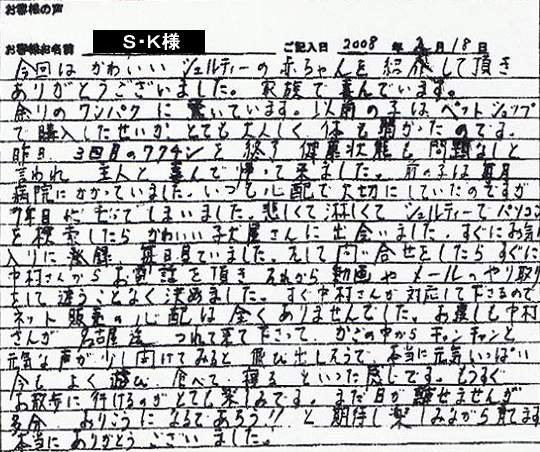 お客様の声
お客様お名前 S・K様 ご記入日 2008 年 2月 18日
今回は かわいい シェルティーの 赤ちゃんを 紹介して頂き
ありがとうございました。 家族で 喜んでいます。
余りの ワンパクに 驚いています。以前の子は ペットショップ
で購入したせいか とても 大人しく 体も 弱かったのです。
昨日 3回目のワクチンを 終了 健康状態も 問題なしと
言われ 主人と 喜んで 帰って来ました。 前の子は 毎月
病院にかかっていました。いつも心配で大切にしていたのですが
7年目に 亡くしてしまいました。悲しくて 淋しくて シェルティーで パソコン
を 検索したら かわいい子犬屋さんに 出会いました。すぐにお気に
入りに 登録 毎日見ていました。そして 問い合せをしたら すぐに
中村さんから お電話を頂き それから 動画や メールの やり取り
をして 迷うことなく 決めました。すぐ中村さんが 対応して下さるので
ネット 販売の 心配は 全くありませんでした。お渡しも 中村
さんが 名古屋迄 つれて来て下さって かごの中から キャンキャンと
元気な声が 少し 開けてみると 飛び出しそうで、本当に 元気いっぱい
今も よく 遊び 食べて 寝る といった 感じです。もうすぐ
お散歩に 行けるのが とても 楽しみです。まだ目が 離せませんが
多分 おりこうに なるであろう!! と 期待し 楽しみながら 育てます
本当に ありがとう ございました。